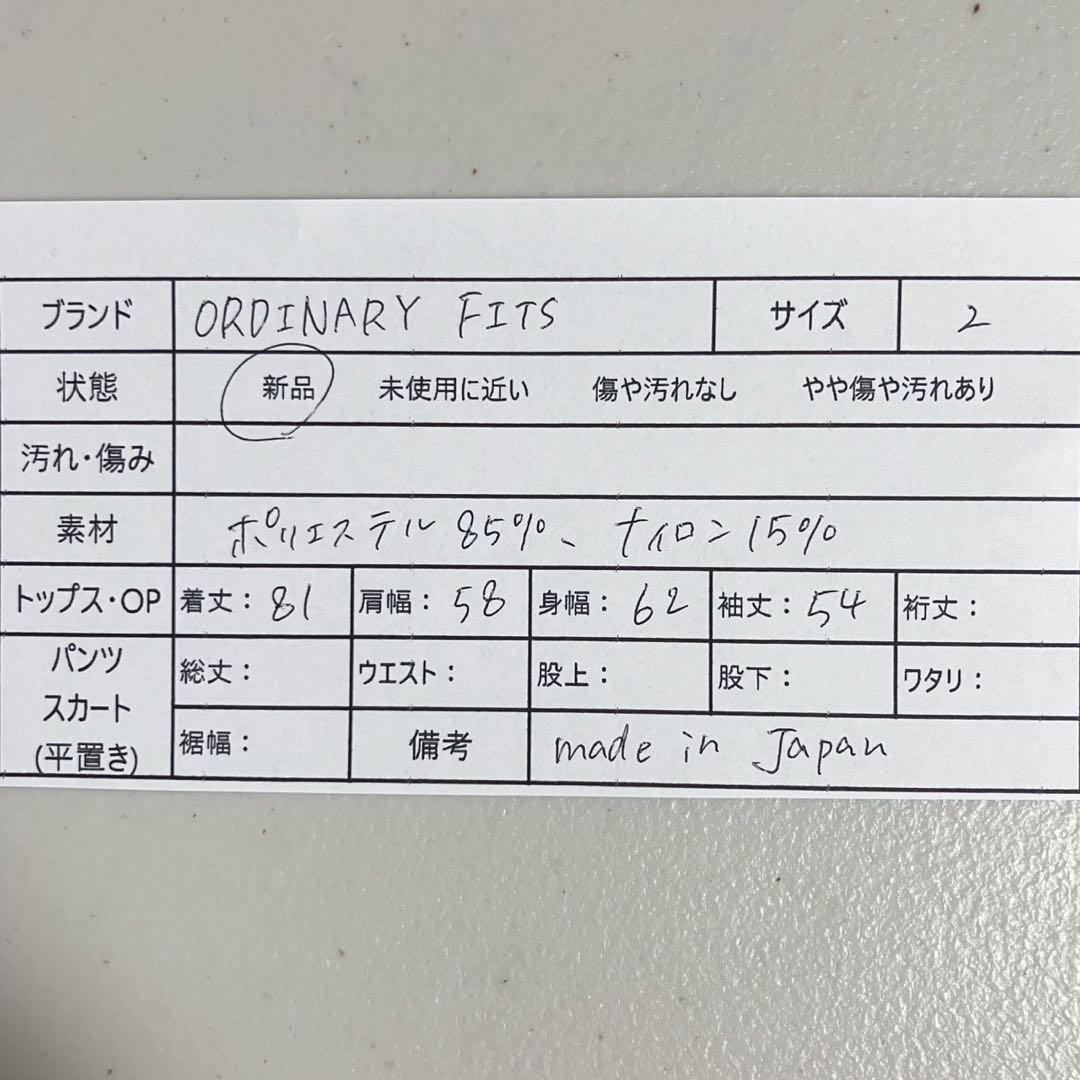 ブランド ORDINARY FITS サイズ 2
状態 新品 未使用に近い 傷や汚れなし やや傷や汚れあり
汚れ・傷み
素材 ポリエステル 85%、ナイロン 15%
トップス・OP 着丈: 81 肩幅: 58 身幅: 62 袖丈: 54 裄丈:
パンツ スカート (平置き) 総丈: ウエスト: 股上: 股下: ワタリ:
裾幅: 備考 made in Japan